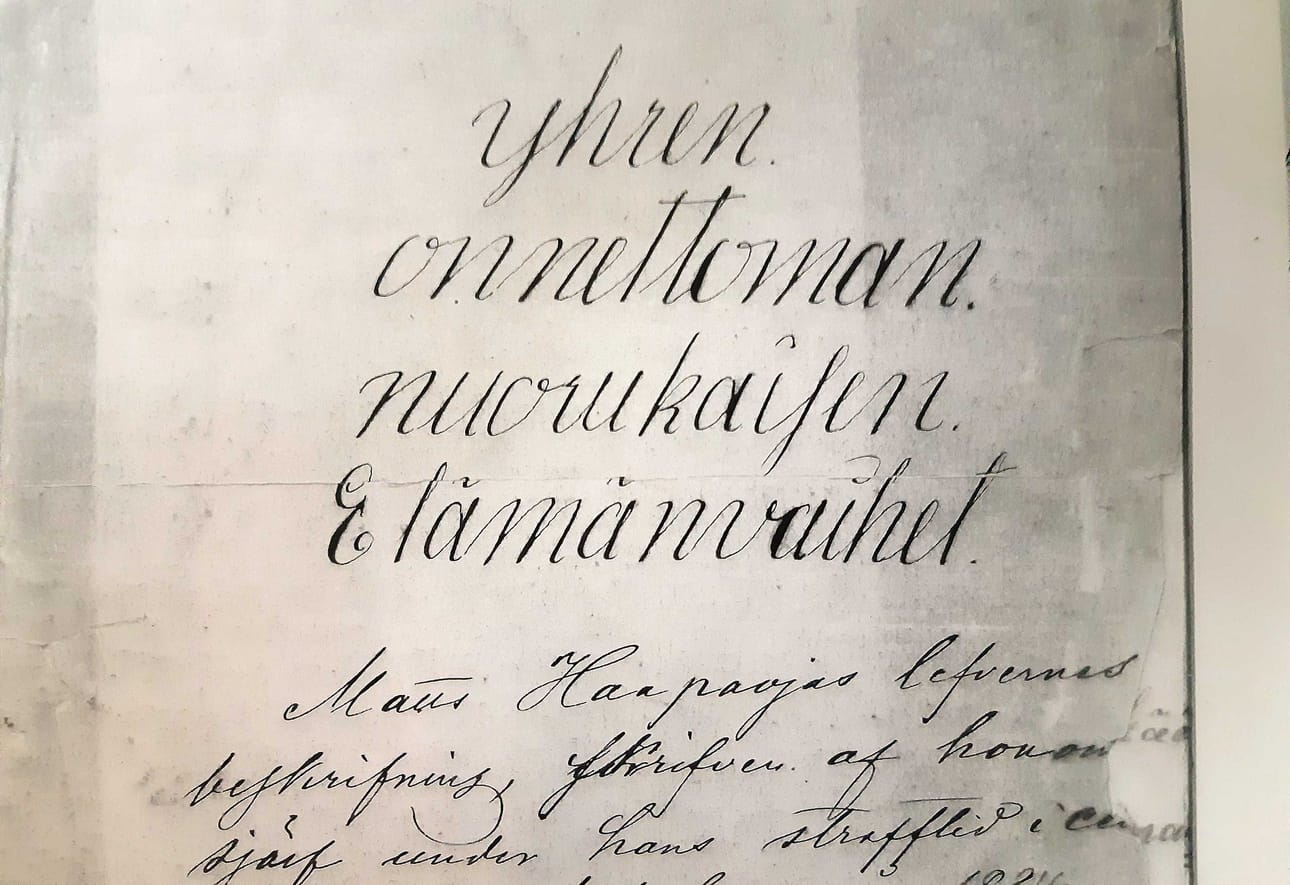 yhren.
onnettoman.
nuorukaisen.
Elämänvaihet.
Matts Haapoojas lefvernes
beskrifning, skrifven af honom
sjelf under hans strafftid i